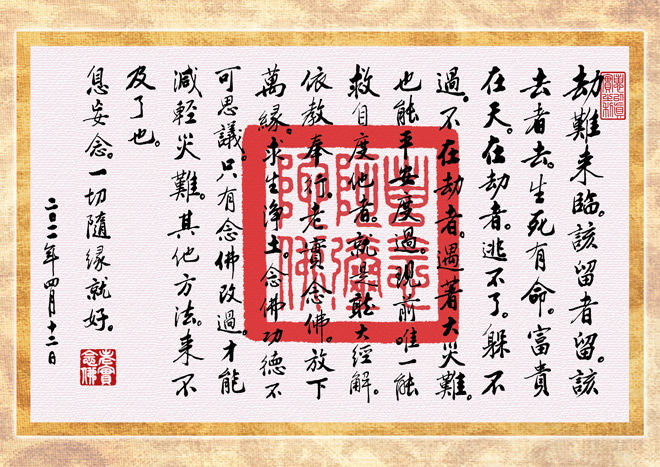 劫難来臨。該留者留。該
去者去。生死有命。富貴
在天。在劫者。逃不了。躲不
過。不在劫者。遇著大災難。
也能平安度過。現前唯一能
救自度他者。就是聽大經解。
依教奉行。老實念佛。放下
萬緣。求生淨土。念佛功德不
可思議。只有念佛改過。才能
減輕災難。其他方法。来不
及了也。
息妄念。一切隨緣就好。
二〇一一年四月十二日
老實
念佛